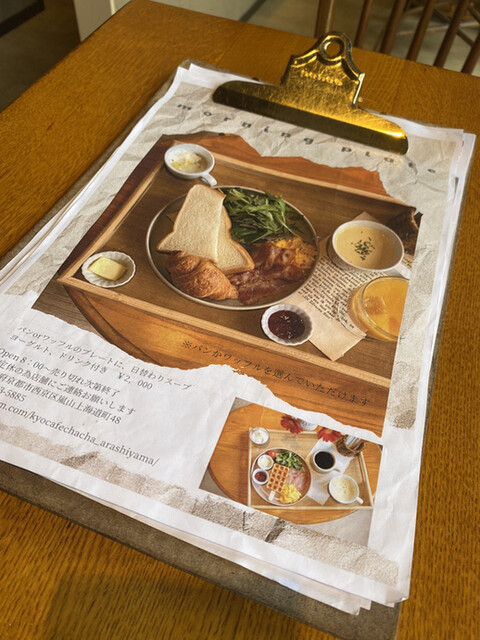 morning plate
※パンかワッフルを選んでいただけます
パンorワッフルのプレートに、日替わりスープ
ヨーグルト、ドリンク付き ¥2,000
Open 8:00〜売り切れ次第終了
定休の為店舗にご連絡お願いします
府京都市西京区嵐山上海道町48
3-5885
m.com/kyocafechacha_arashiyama/